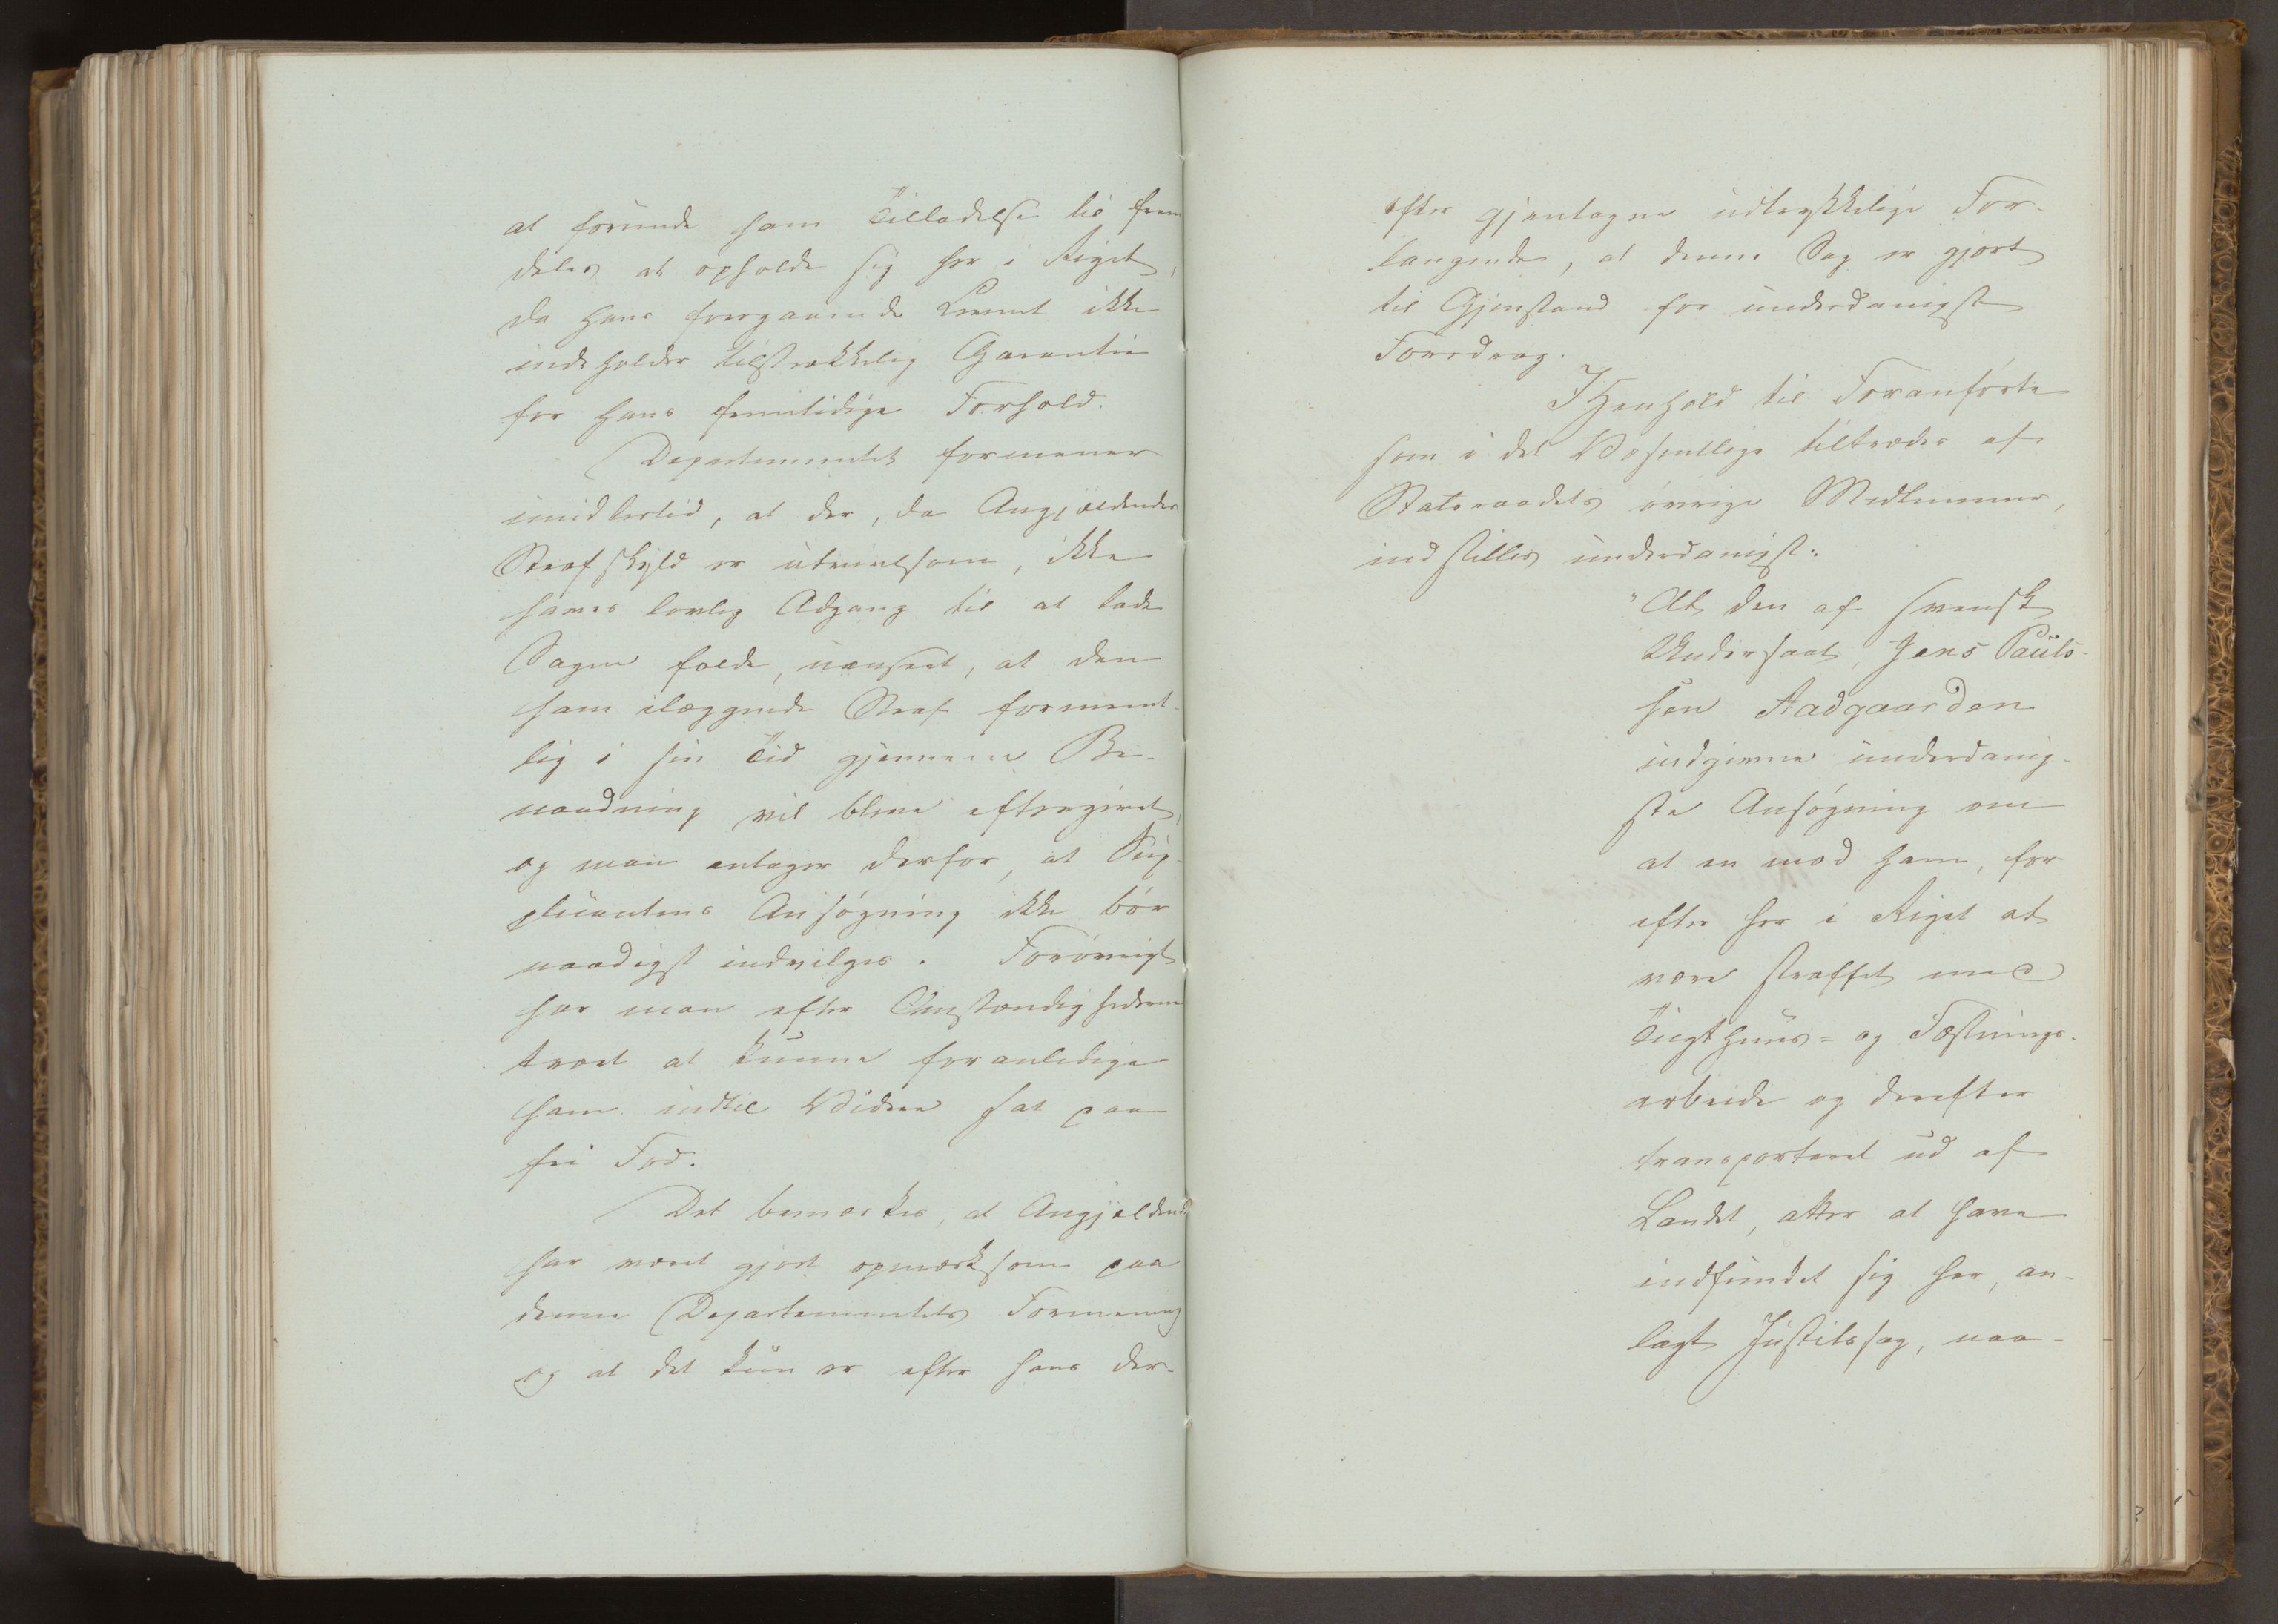 at forunde ham Tilladelse til frem
deles at opholde sig her i Riget,
da hans foregaaende Levnet ikke
indeholder tilstrækkelig Garantie
for hans fremtidige Forhold.
Departementet formener
imidlertid, at der, da Angjældendes
Strafskyld er utvivlsom, ikke
haves lovlig Adgang til at lade
Sagen falde, uanseet, at den
ham ilæggende Straf forment-
lig i sin Tid gjennem Be-
naadning vil blive eftergivet,
og man antager derfor, at Sup-
plicantens Ansøgning ikke bør
naadigst indvilges. Forøvrigt
har man efter Omstændighederne
troet at kunne foranledige
ham indtil Videre sat paa
fri Fod.
Det bemærkes, at Angjældende
har været gjort opmærksom paa
denne Departementets Formening
og at det kun er efter hans der-
efter gjentagne udtrykkelige For-
langende, at denne Sag er gjort
til Gjenstand for underdanigst
Foredrag.
I Henhold til Foranførte
som i det Væsentlige tiltrædes af
Statsraadets øvrige Medlemmer,
indstilles underdanigst:
"At den af svensk
Undersaat, Jens Pauls-
sen Aadgaarden
indgivne underdanig-
ste Ansøgning om
at en mod ham, for
efter her i Riget at
være straffet med
Tugthuus- og Fæstnings-
arbeide og derefter
transporteret ud af
Landet, atter at have
indfundet sig her, an-
lagt Justitssag, naa-